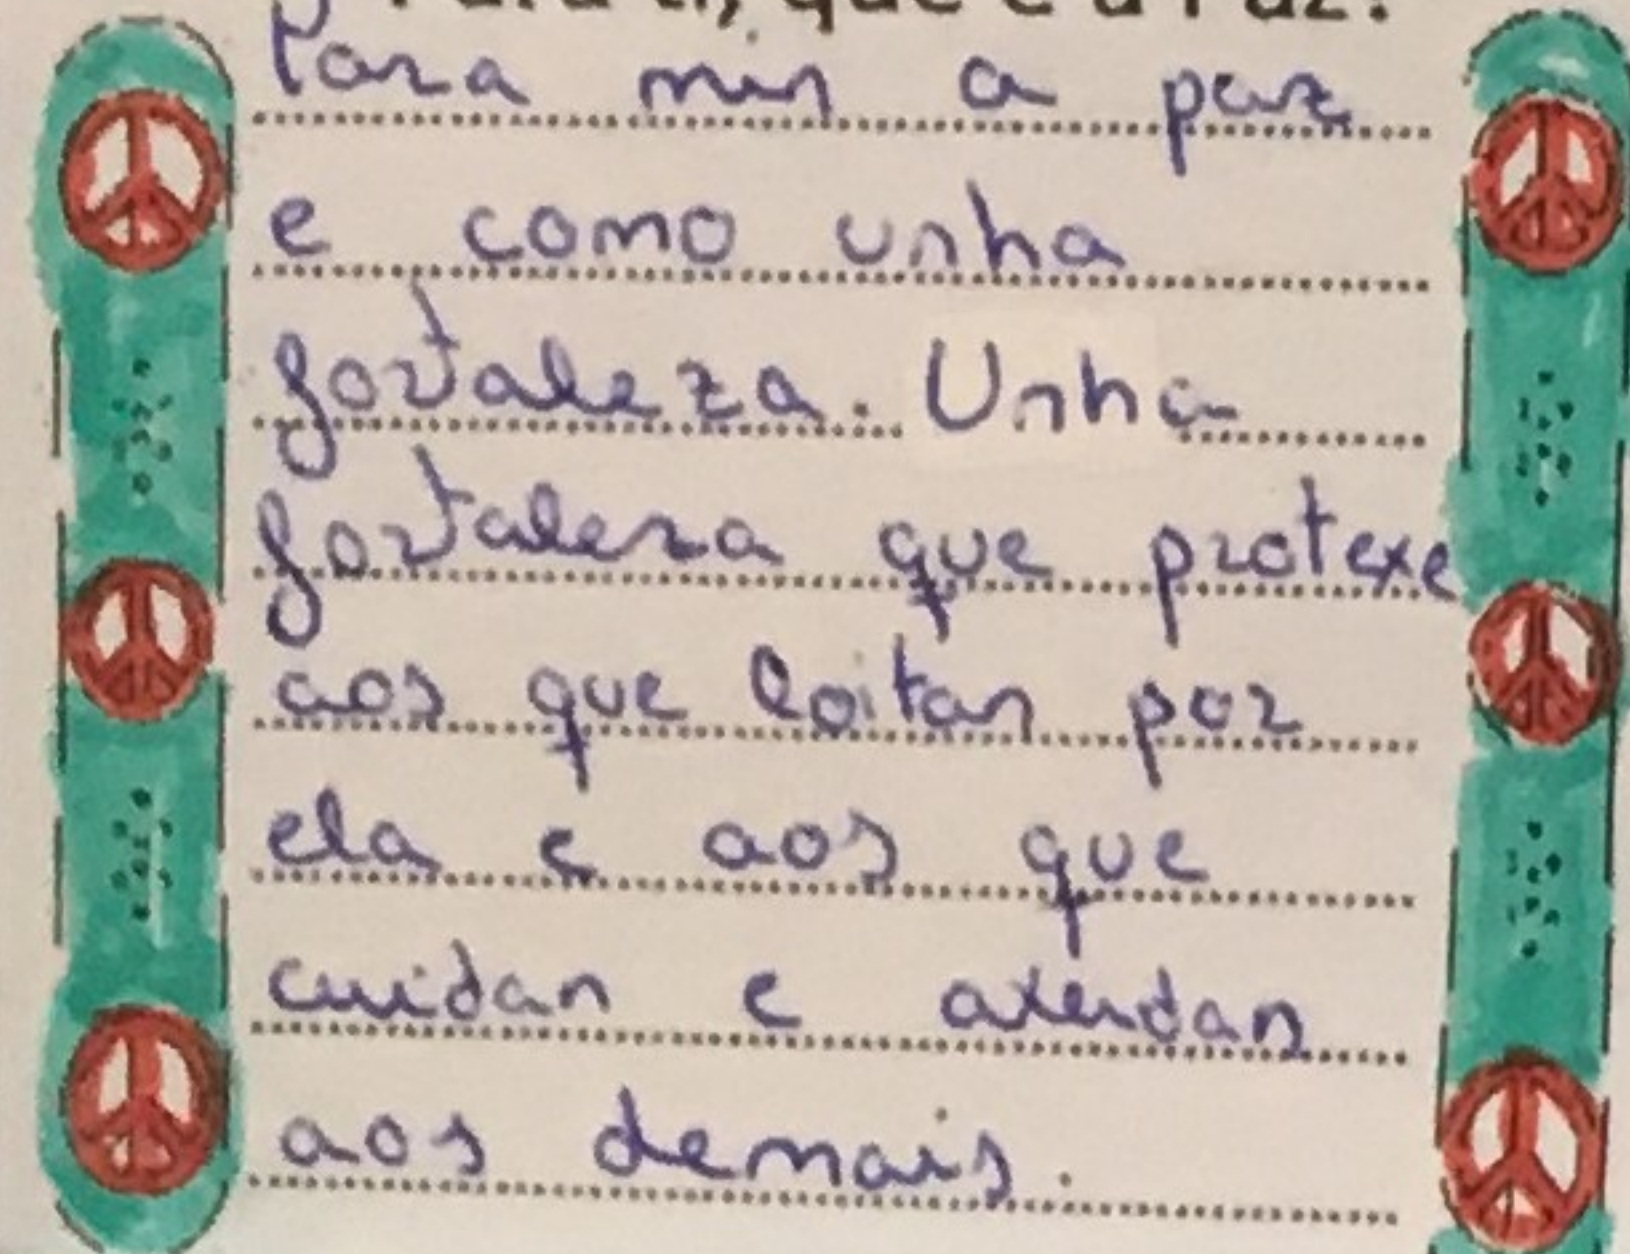 Para ti, que é a Paz?
Para min a paz
e como unha
fortaleza. Unha
fortaleza que protexe
aos que loitan por
ela e aos que
cuidan e axudan
aos demais.